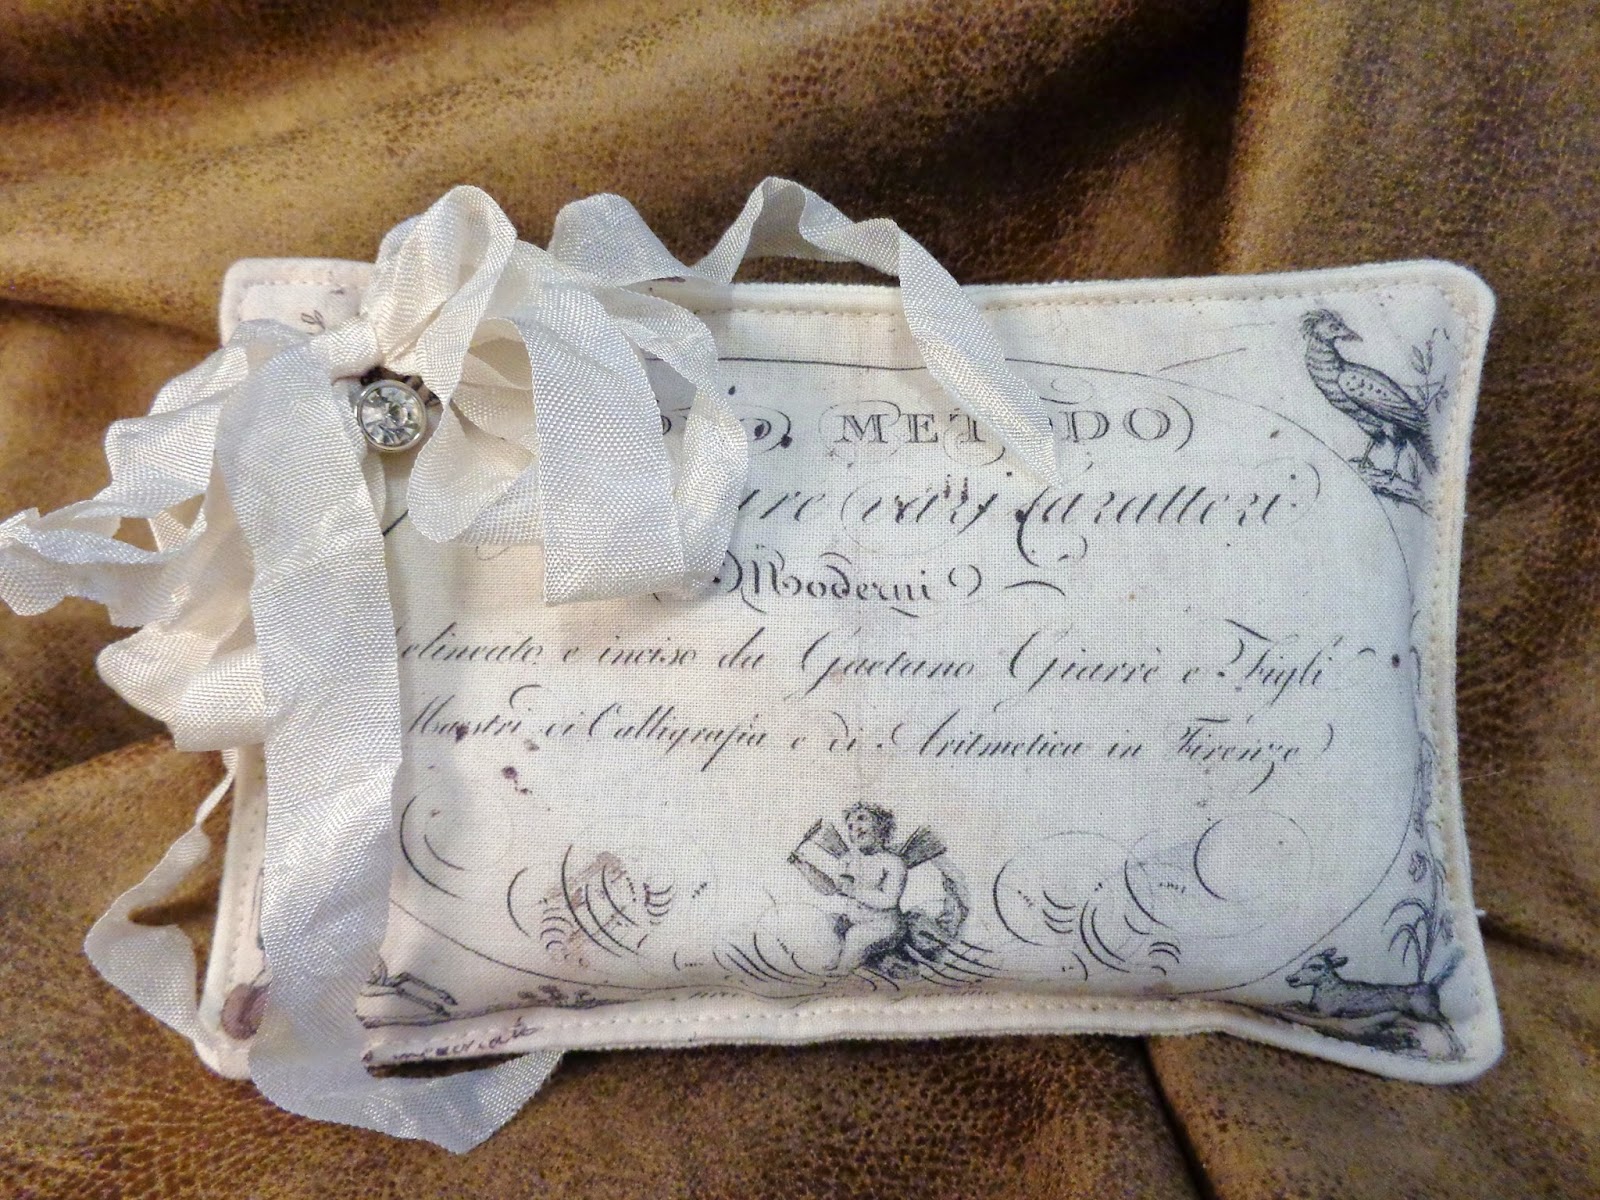 METODO
varj Caratteri
Moderni
elineato e inciso da Gaetano Giarrè e Figli
Maestri di Calligrafia e di Aritmetica in Firenze